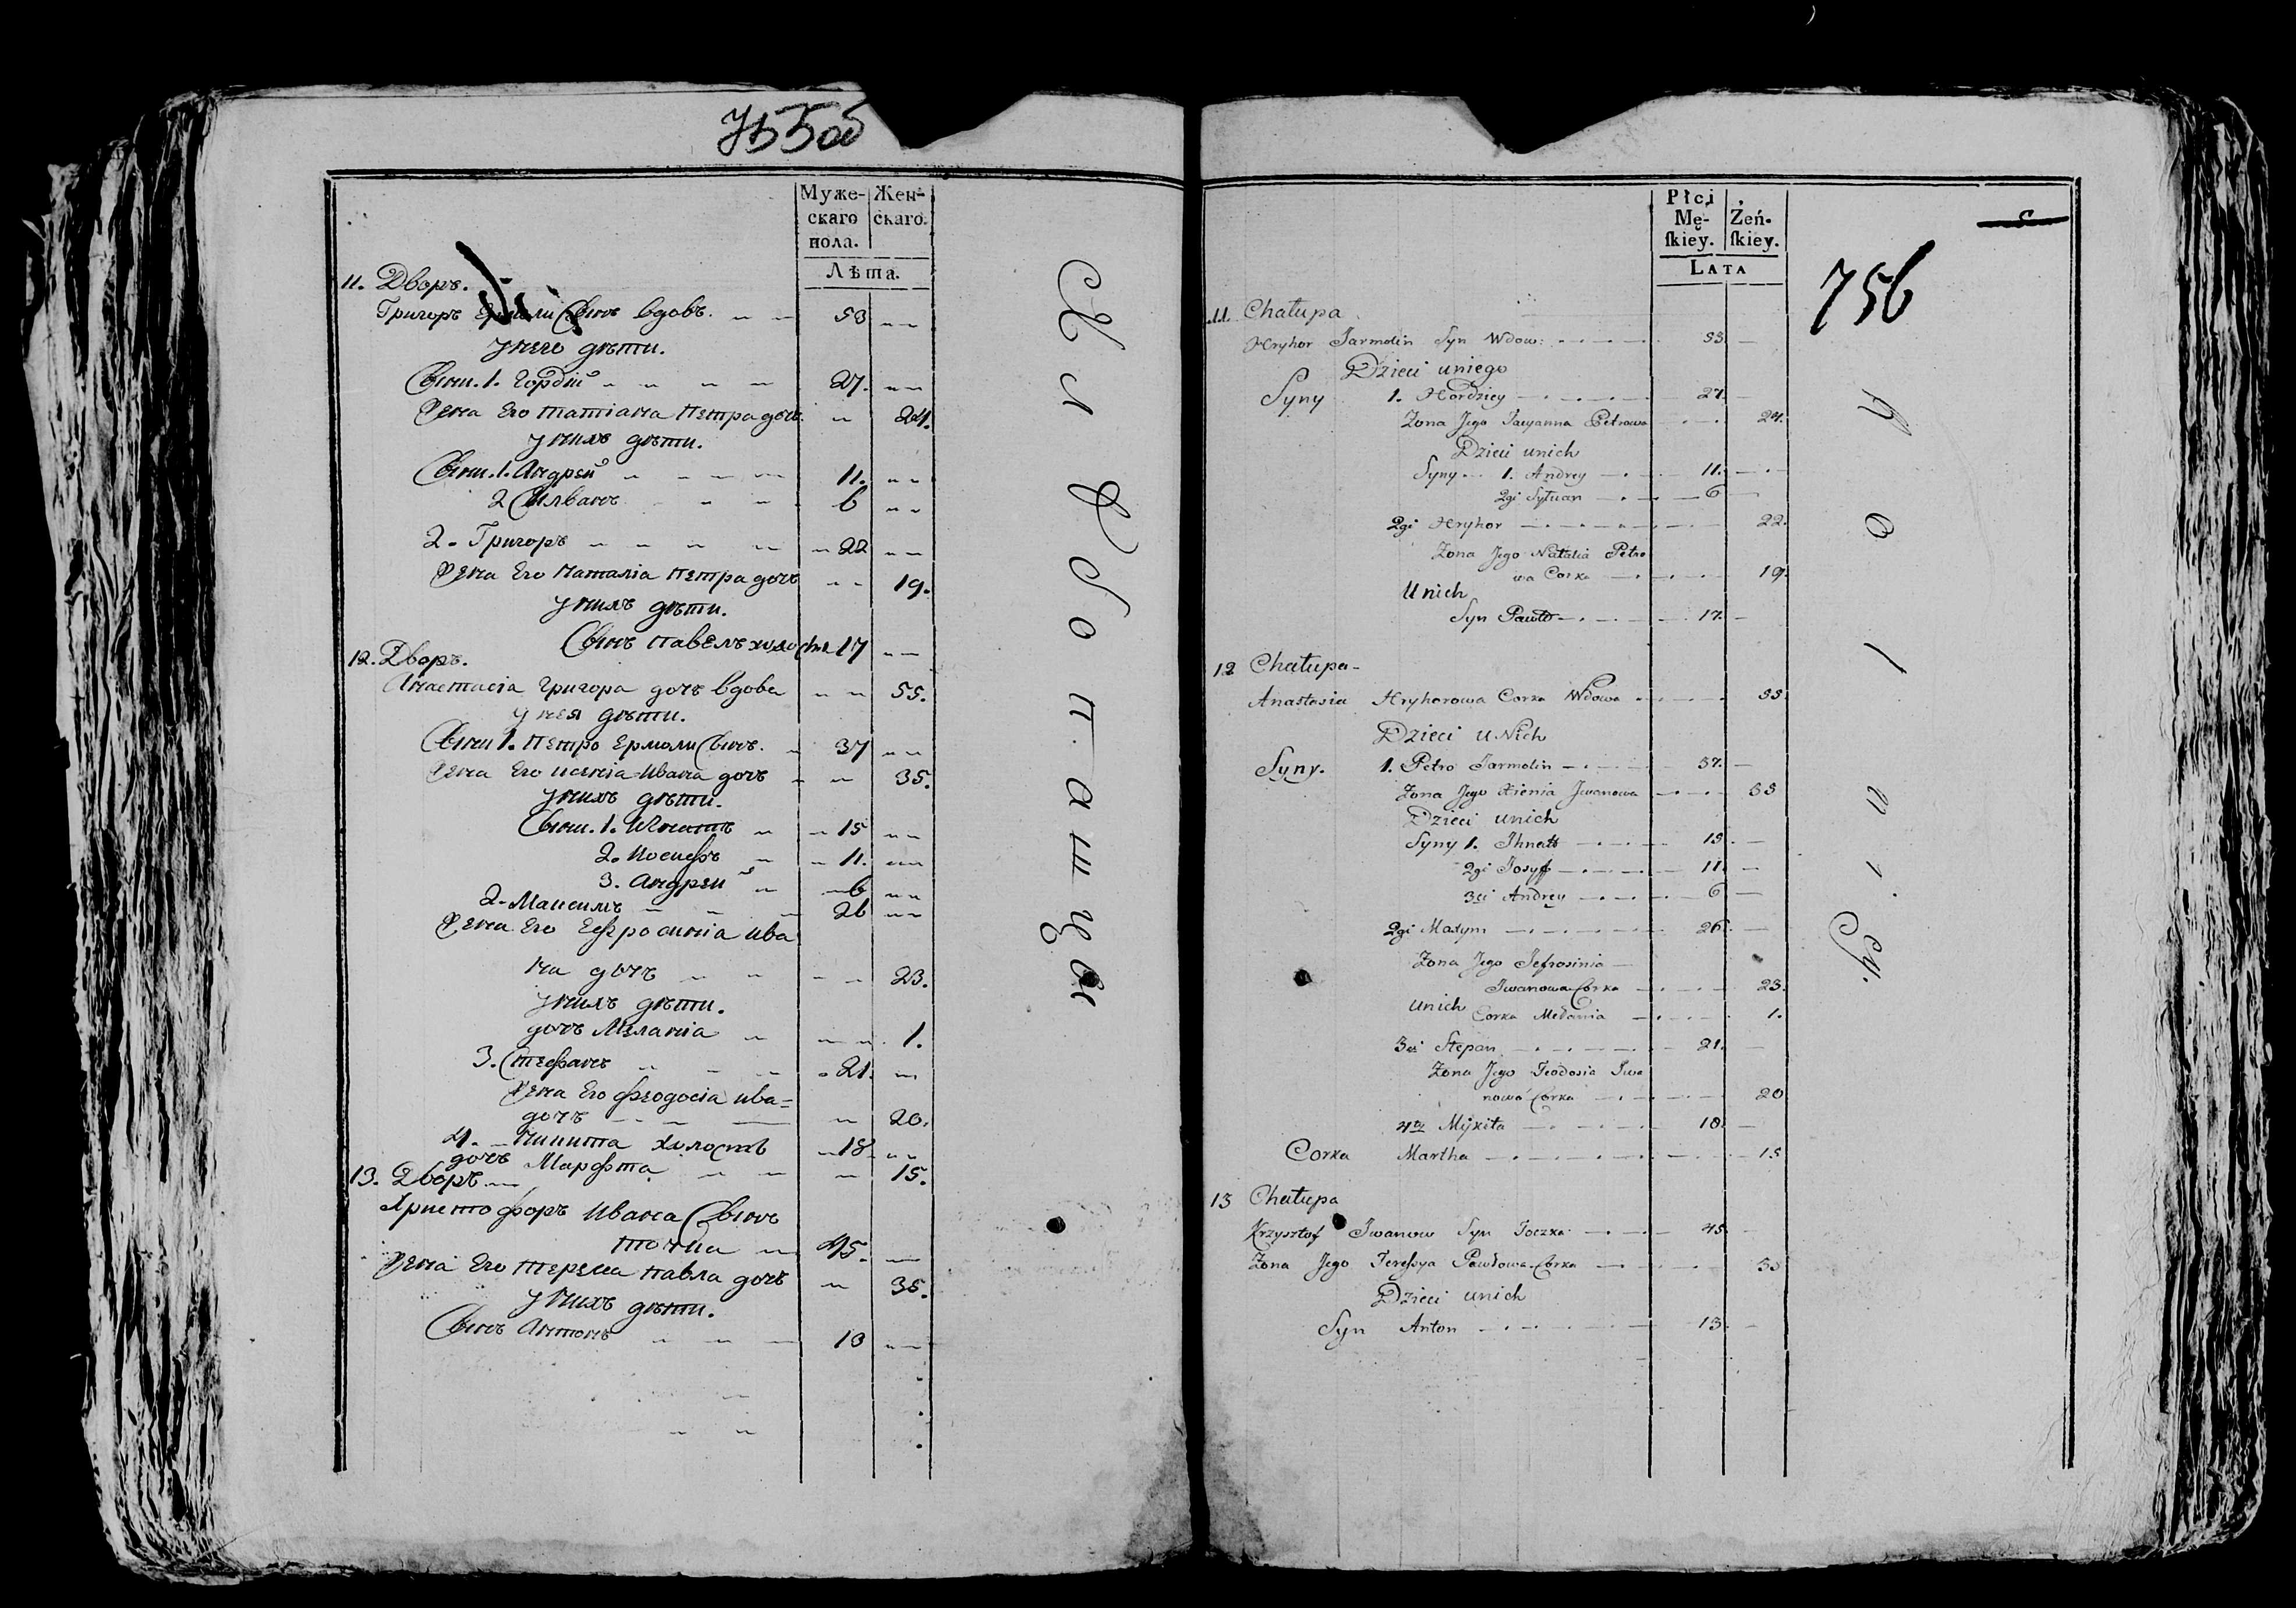 755об
Муже-
скаго
пола.
Жен-
скаго.
Лѣта.
11. Дворъ.
Григоръ Ермоли Сынъ вдовъ. 53
у него дѣти.
Сыны. 1. Гордій 27.
Жена Его татіана петра дочь 24.
у нихъ дѣти.
Сыны. 1. Андрей 11.
2 Силванъ 6
2. Григоръ 22
Жена Его наталіа петра дочь 19.
у нихъ дѣти.
Сынъ павелъ холостъ 17
12. Дворъ.
Анастасіа григора дочь вдова 55.
у нея дѣти.
Сыны 1. петро ермоли Сынъ. 37
Жена Его ксеніа ивана дочь 35.
у нихъ дѣти.
Сыны. 1. Игнатъ 15
2. иосифъ 11.
3. андреи 6
2. Максимъ 26
Жена Его Ефросиніа ива
на дочь 23.
у нихъ дѣти.
дочь Меланіа 1.
3. Стефанъ 21.
Жена Его феодосіа ива=
дочь 20.
4. Никита холостъ 18
дочь Марфта 15.
13. Дворъ
Христофоръ ивана Сынъ
точка 45.
Жена Его тереса павла дочь 35.
у нихъ дѣти.
Сынъ Антонъ 13
Płci
Mę-
ſkiey.
Żeń-
ſkiey.
LATA
756
11 Chałupa
Hryhor Jarmolin Syn Wdow: 53
Dzieci uniego
Syny 1. Hordziey 27.
Zona Jego Tacyanna Petrowa 24.
Dzieci unich
Syny 1. Andrey 11.
2gi Sylwan 6
2gi Hryhor 22.
Zona Jego Natalia Petro
wa Corka 19.
Unich
Syn Pawło 17.
12 Chałupa
Anastasia Hryhorowa Corka Wdowa 55
Dzieci uNich
Syny. 1. Petro Jarmolin 37.
Zona Jego Xienia Jwanowa 35
Dzieci unich
Syny 1. Jhnatt 15
2gi Josyff 11.
3ci Andrey 6
2gi Maxym 26
Zona Jego Jefrosinia
Jwanowa Corka 23.
Unich Corka Mełania 1.
3ci Stepan 21.
Zona Jego Teodosia Jwa
nowa Corka 20
4ty Mykita 18.
Corka Martha 15
13 Chałupa
Krzysztof Jwanow Syn Toczka 45
Zona Jego Teressya Pawłowa Corka 35
Dzieci unich
Syn Anton 13